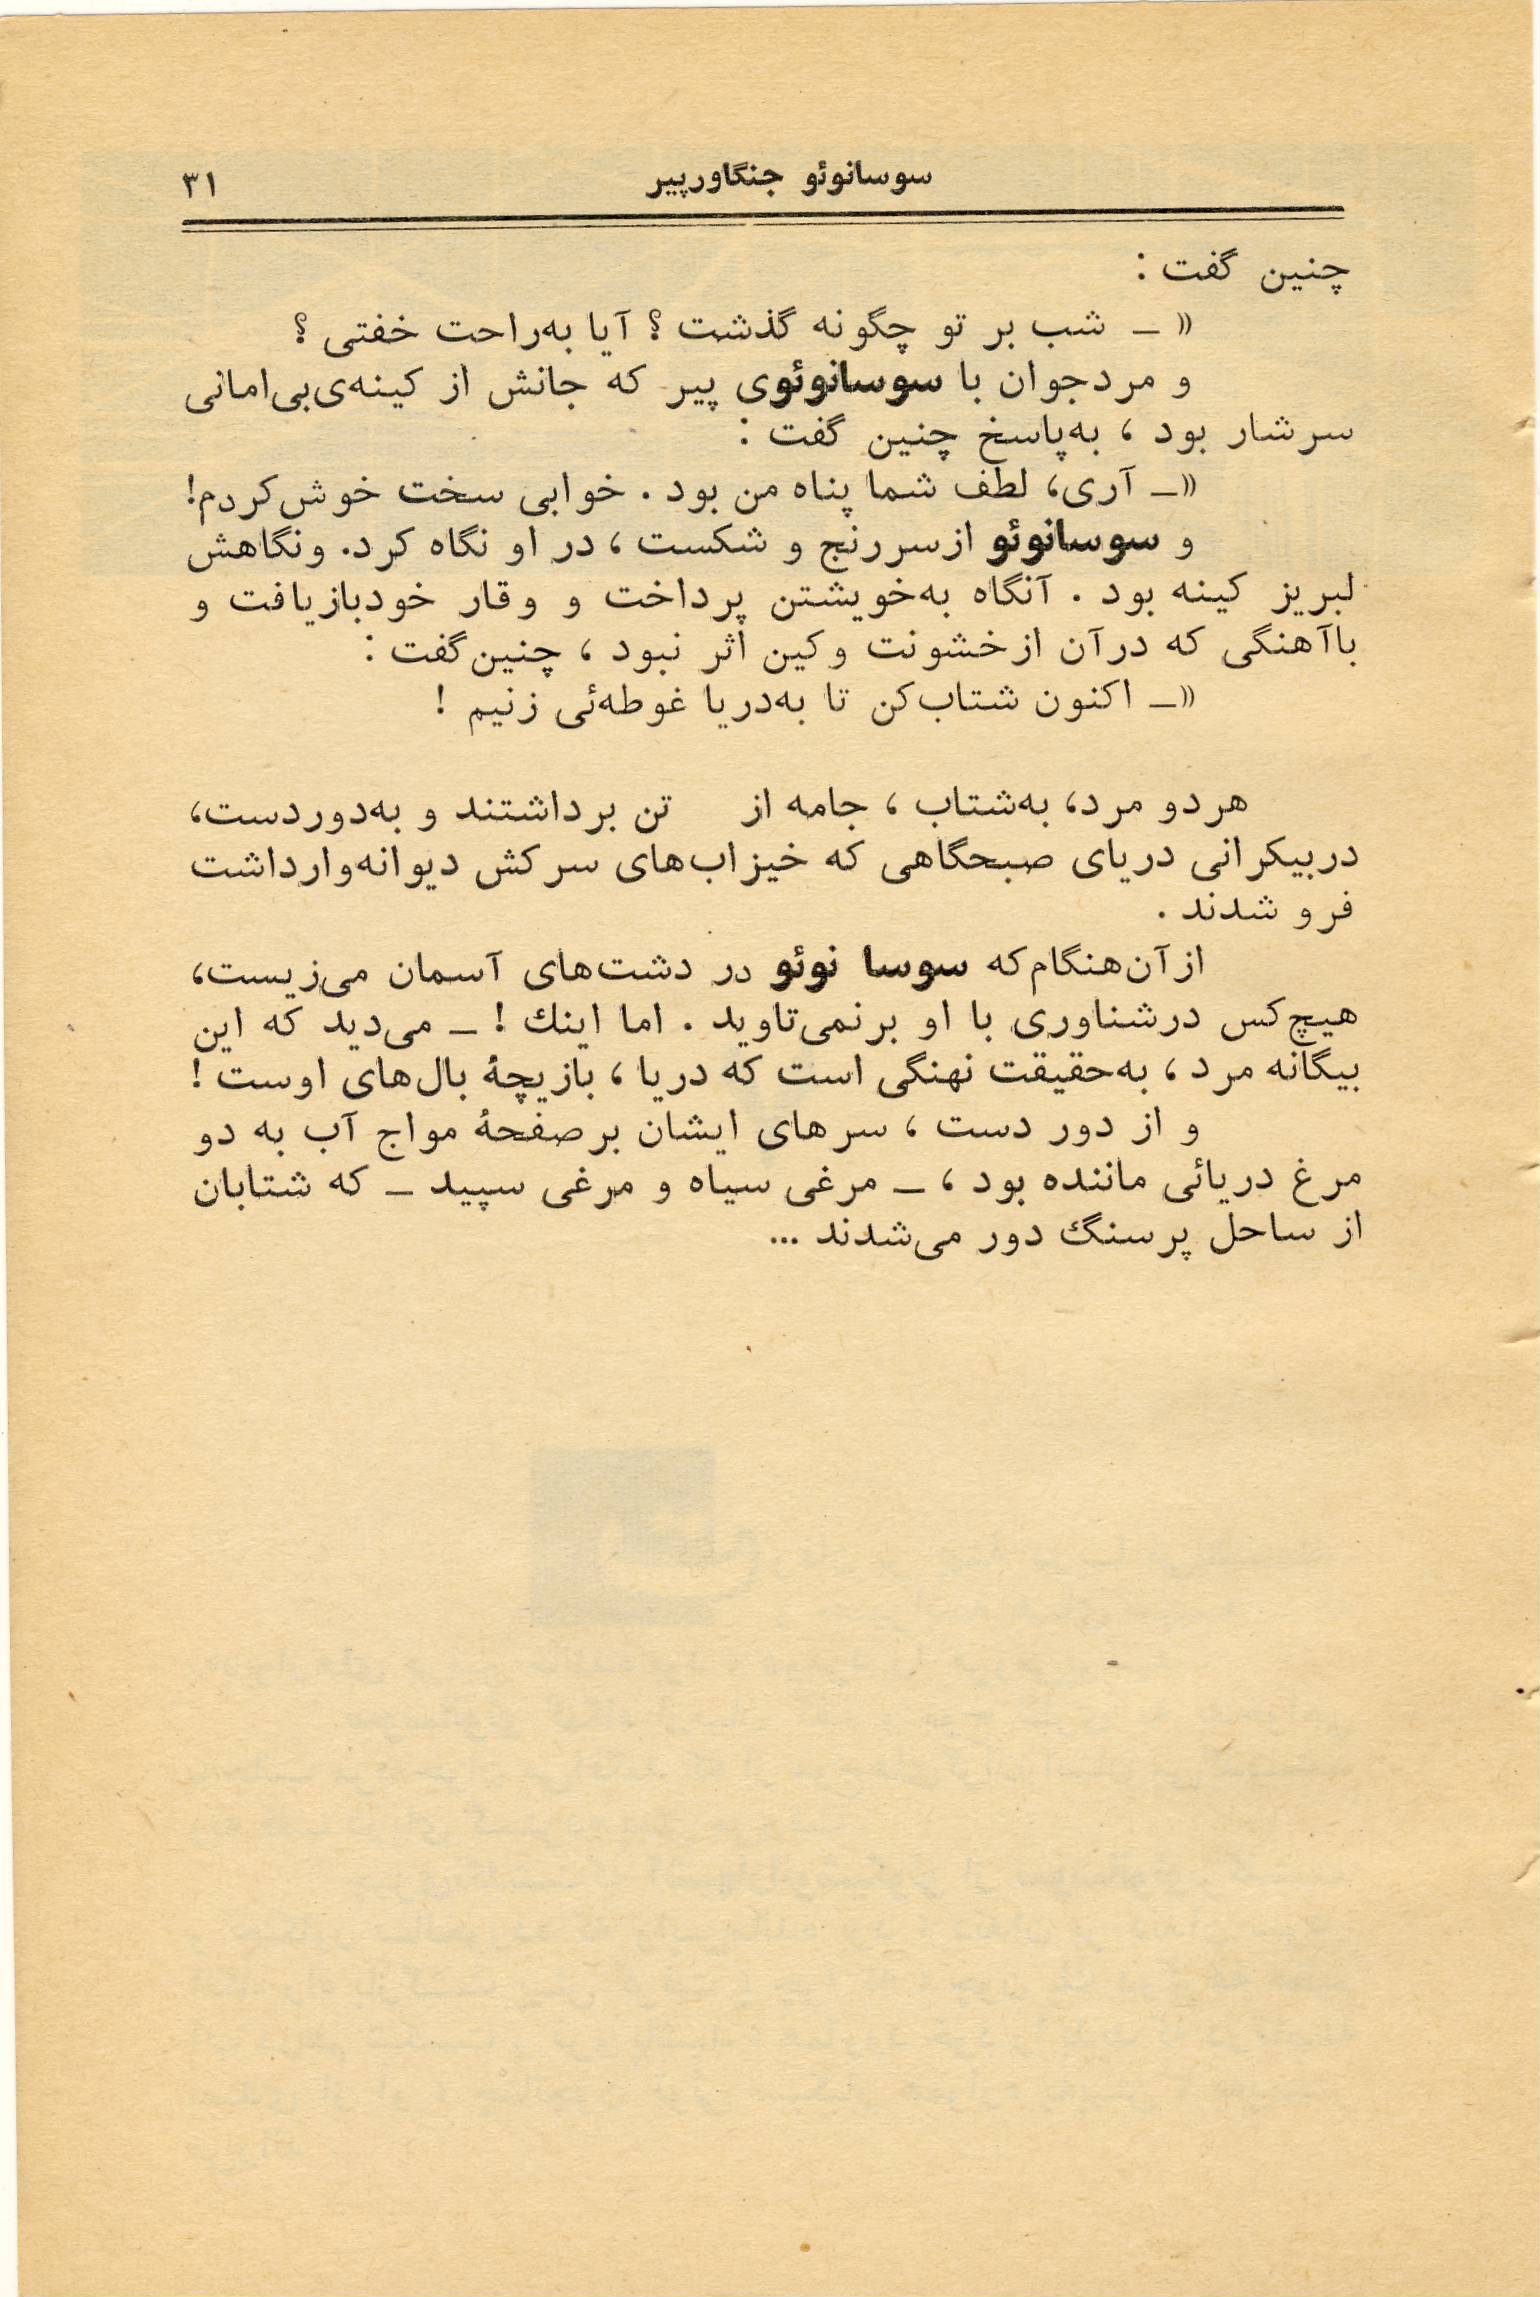 سوسانوئو جنگاورپیر ۳۱
چنین گفت :
« ــ شب بر تو چگونه گذشت ؟ آیا به‌راحت خفتی ؟
و مردجوان با سوسانوئوی پیر که جانش از کینه‌ی‌بی‌امانی
سرشار بود ، به‌پاسخ چنین گفت :
«ــ آری، لطف شما پناه من بود . خوابی سخت خوش‌کردم!
و سوسانوئو ازسررنج و شکست ، در او نگاه کرد. ونگاهش
لبریز کینه بود . آنگاه به‌خویشتن پرداخت و وقار خودبازیافت و
باآهنگی که درآن ازخشونت وکین اثر نبود ، چنین‌گفت :
«ــ اکنون شتاب‌کن تا به‌دریا غوطه‌ئی زنیم !
هردو مرد، به‌شتاب ، جامه از تن برداشتند و به‌دوردست،
دربیکرانی دریای صبحگاهی که خیزاب‌های سرکش دیوانه‌وارداشت
فرو شدند .
ازآن‌هنگام‌که سوسا نوئو در دشت‌های آسمان می‌زیست،
هیچ‌کس درشناوری با او برنمی‌تاوید . اما اینك ! ــ می‌دید که این
بیگانه مرد ، به‌حقیقت نهنگی است که دریا ، بازیچهٔ بال‌های اوست !
و از دور دست ، سرهای ایشان برصفحهٔ مواج آب به دو
مرغ دریائی ماننده بود ، ــ مرغی سیاه و مرغی سپید ــ که شتابان
از ساحل پرسنگ دور می‌شدند ...